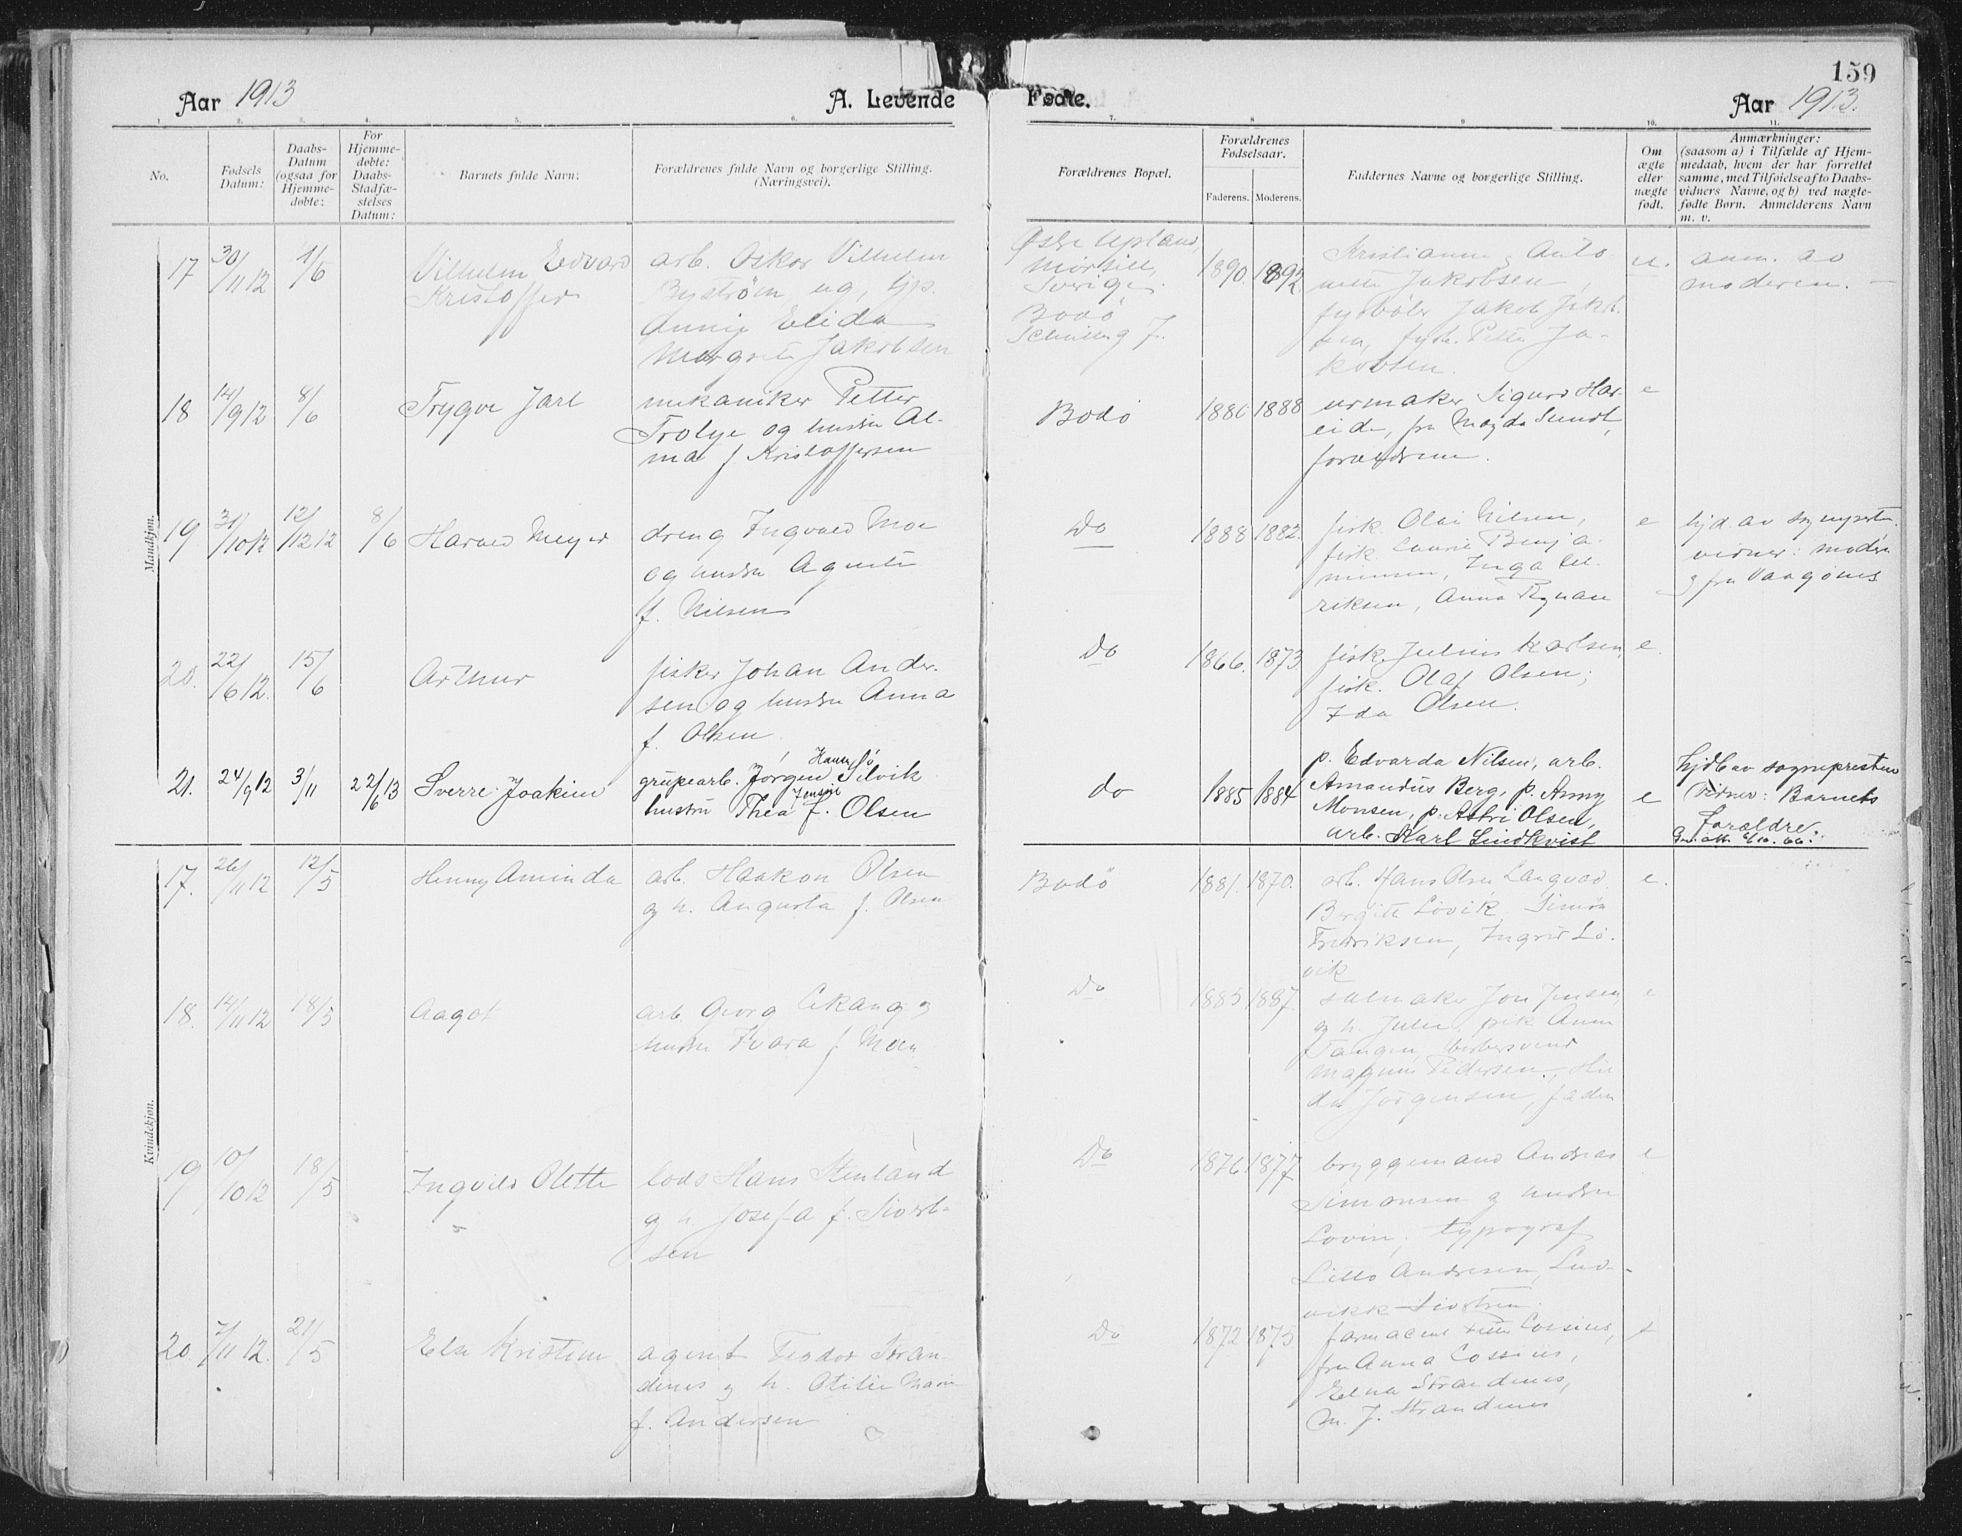 159
Aar 1913
A. Levende
Fødte.
Aar 1913.
1.
2.
3.
4.
5.
6.
7.
8
9
10.
11.
No.
Fødsels
Datum:
Daabs-
Datum
(ogsaa for
Hjemme-
døbte:
For
Hjemme-
døbte:
Daabs-
Stadfæ-
stelses
Datum:
Barnets fulde Navn:
Forældrenes fulde Navn og borgerlige Stilling.
(Næringsvei).
Forældrenes Bopæl.
Forældrenes
Fødselsaar.
Faderens.
Moderens.
Faddernes Navne og borgerlige Stilling.
Om
ægte
eller
nægte
født.
Anmærkninger:
(saasom a) i Tilfælde af Hjem-
medaab, hvem der har forrettet
samme, med Tilføielse af to Daabs-
vidners Navne, og b) ved nægte-
fødte Børn. Anmelderens Navn
m. v.
Mandkjøn.
17 30/11 12 1/6 Vilhelm Edvard
Kristoffer
arb. Oskar Vilhelm
Byström ug, tjp.
Annie Elida
Margrete Jakobsen
Østre Upland,
Mörsill,
Sverige.
Bodø
1890. 1892.
Kristianne, Anto-
nette Jakobsen,
fyrbøter Jakob Jakob-
sen, Petter Ja-
kobsen.
u. anm. av
moderen.
18 14/9 12 8/6 Trygve Jarl
mekaniker Petter
Trolye og hustru Al-
ma f Kristoffersen
Bodø
1886 1888
urmaker Sigurd Har-
eide, fru Magda Sundt,
forældrene.
e
19. 31/10 12 12/12 12 8/6 Harald Meyer
dreng Ingvald Moe
og hustru Agnete
f. Nilsen
Do
1888 1882.
fisk. Olai Nilsen,
fisk. Laurie Benja-
minsen, Inga El-
riksen, Anna
e hjd av sognepresten
vidner: moderen
og fru Vaagønes
20. 22/6 12. 15/6 Arthur
fisker Johan Ander-
sen og hustru Anna
f. Olsen
Do
1866. 1873
fisk. Julius Karlsen,
fisk. Olaf Olsen,
Ida Olsen.
e.
21. 24/9 12 3/11 22/6 13 Sverre Joakim
grupearb. Jørgen Silvik
hustru Thea Jensine f. Olsen
do
1885 1884
p. Edvarda Nilsen, arb.
Amandus Berg, p. Anny
Monsen, p. Astri Olsen,
arb. Karl Lindkvist
e
hjdb av sognepresten
Vidner: Barnets
Forældre.
Kvindekjøn.
17. 26/11 12 12/5 Henny Aminda
arb. Haakon Olsen
og h. Augusta f. Olsen
Bodø
1881. 1870.
arb. Hans Olsen Langvad
Bergitte Løvik, Simon
Fredriksen, Ingrid Lø-
vik
e.
18. 14/11 12 18/5 Aagot
arb Georg Ekang og
hustru Ivara f. Moen
Do
1885. 1887.
salmaker Jon Jensen
og h. Julie, pike Anna
Tangen, barbersvend
Magnus Pedersen, Hil-
da Jørgensen, faderen
e
19 10/10 12 18/5 Ingvild Olette
lods Hans Stenland
og h. Josefa f. Sivert-
sen
Do
1876 1877
bryggemand Andreas
Simonsen og hustru
Lovine, typograf
Lillo Andresen, Lud-
vikke Sivertsen.
e
20 7/11 12. 21/5 Else Kristine
agent Teodor Stran-
denes og h. Otilie Marie
f. Andersen
Do
1872 1875
farmaceut Cossius,
fru Anna Cossius,
Edna Strandenes,
M. J. Strandenes